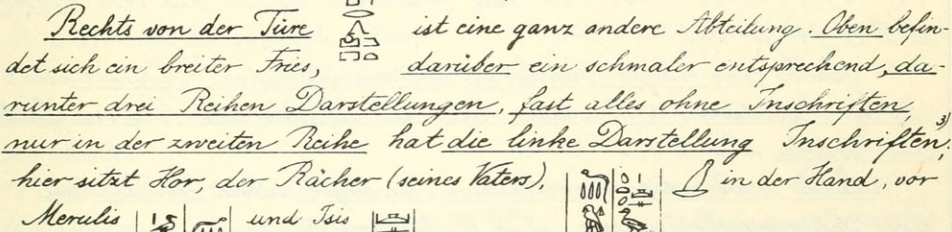 Rechts von der Türe ist eine ganz andere Abteilung. Oben befin-
det sich ein breiter Fries, darüber ein schmaler entsprechend, da-
runter drei Reihen Darstellungen, fast alles ohne Inschriften,
nur in der zweiten Reihe hat die linke Darstellung Inschriften³⁾,
hier sitzt Hor, der Rächer (seines Vaters), in der Hand, vor
Merulis und Isis